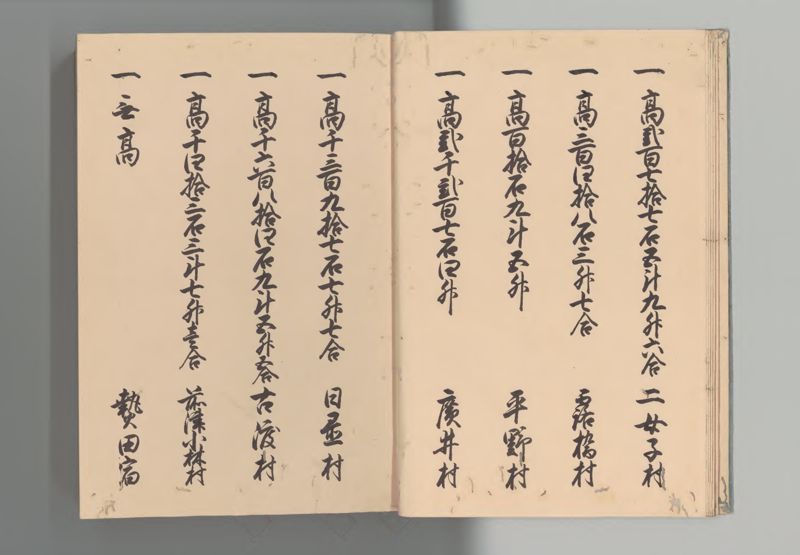 一高弐百七拾七石五斗九升六合 二女子村
一高三百四拾八石三升七合 露橋村
一高百拾石九斗五升 平野村
一高弐千弐百七石四升 廣井村
一高千三百九拾七石七升七合 日置村
一高千六百八拾四石九斗五升五合 古渡村
一高千四拾三石三斗七升壱合 前津小林村
一無高 熱田宿